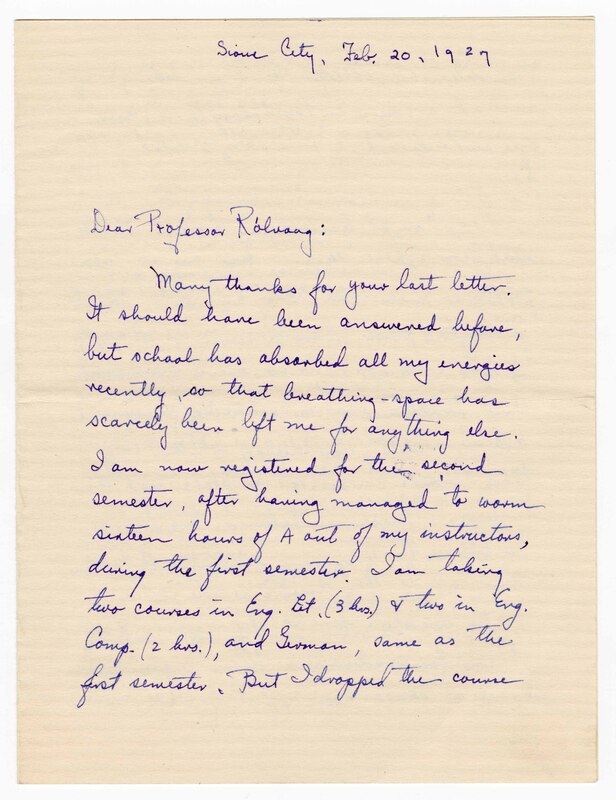 Sioux City, Feb. 20, 1927
Dear Professor Rölvaag:
Many thanks for your last letter.
It should have been answered before,
but school has absorbed all my energies
recently, so that breathing-space has
scarcely been left me for anything else.
I am now registered for the second
semester, after having managed to worm
sixteen hours of A out of my instructors,
during the first semester. I am taking
two courses in Eng. Lit. (3 hrs.) & two in Eng.
Comp. (2 hrs.), and German, same as the
first semester. But I dropped the course